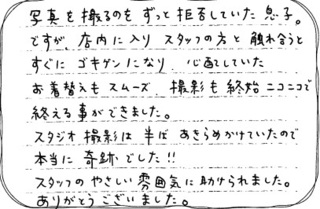 写真を撮るのをずっと拒否していた息子。
ですが、店内に入りスタッフの方と触れ合うと
すぐにゴキゲンになり、心配していた
お着替えもスムーズ、撮影も終始ニコニコで
終える事ができました。
スタジオ撮影は半ばあきらめかけていたので
本当に奇跡でした!!
スタッフのやさしい雰囲気に助けられました。
ありがとうございました。